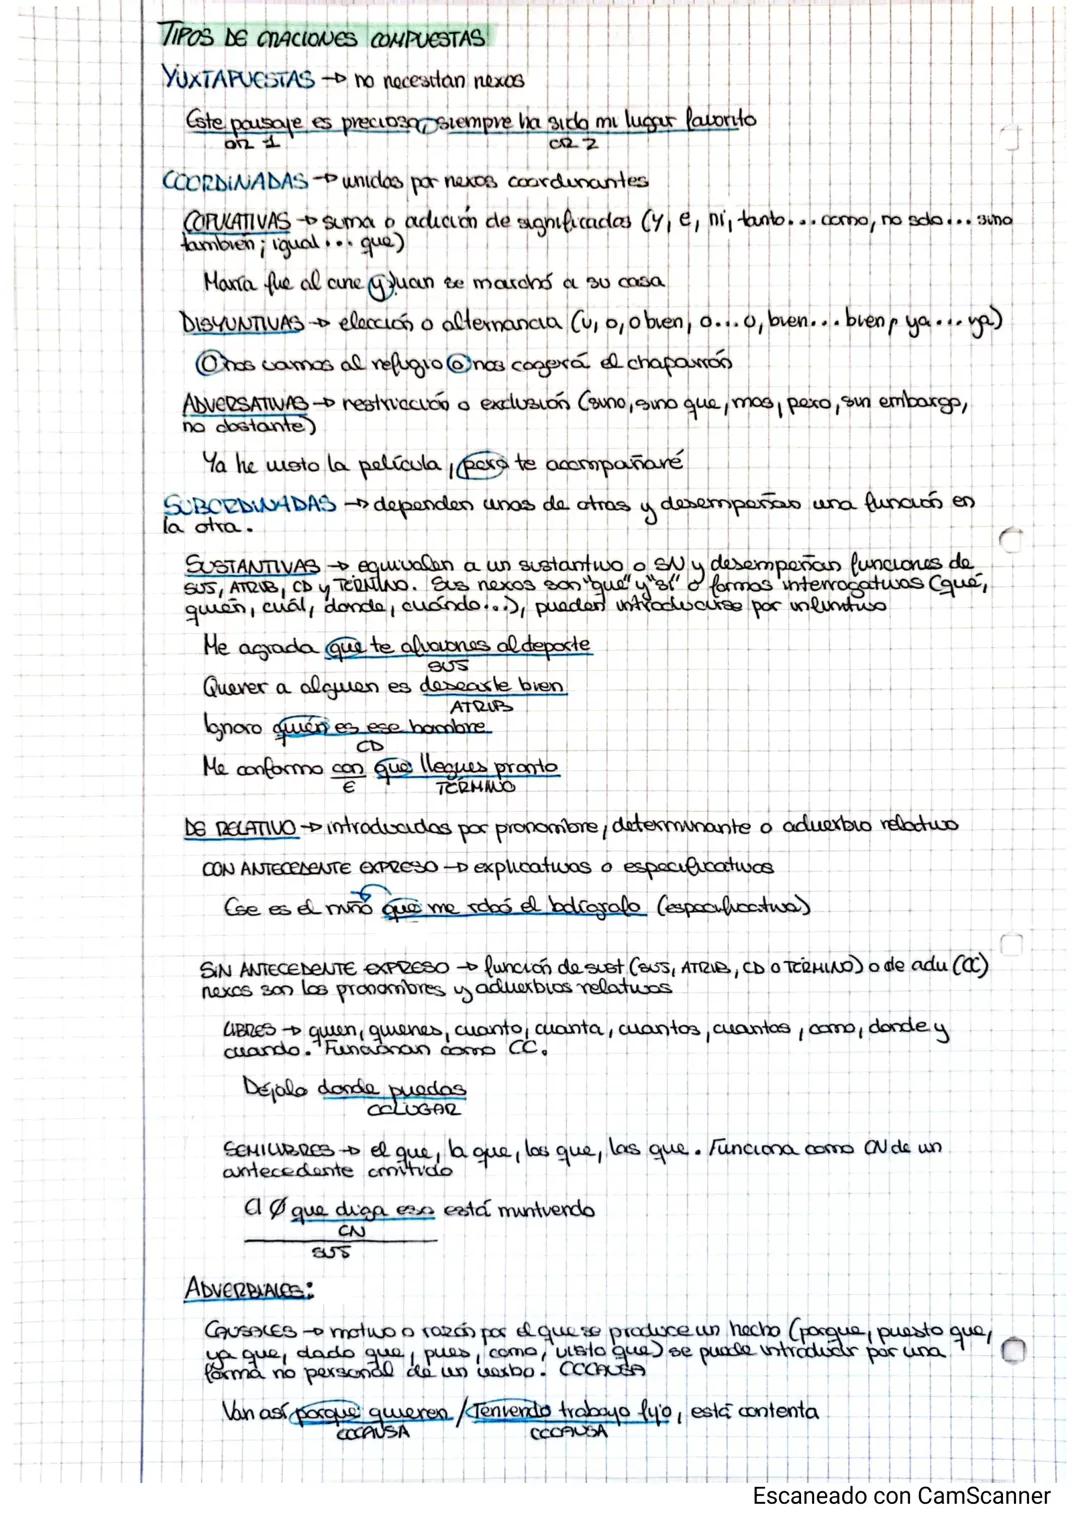 TIPOS DE ORACIONES COMPUESTAS
YUXTAPUESTAS → no necesitan nexos
Este paisaje es precioso, siempre ha sido mi lugar favorito
OR 1 OR 2
COORDINADAS → unidas por nexos coordinantes
COPULATIVAS → suma o adición de significados (y, e, ni, tanto... como, no solo... sino
también; igual... que)
María fue al cine y Juan se marchó a su casa
DISYUNTIVAS → elección o alternancia (u, o, o bien, o...o, bien... bien, ya... ya)
O nos vamos al refugio o nos cogerá el chaparrón
ADVERSATIVAS → restricción o exclusión (sino, sino que, mas, pero, sin embargo,
no obstante)
Ya he visto la película, pero te acompañaré
SUBORDINADAS → dependen unas de otras y desempeñan una función en
la otra.
SUSTANTIVAS → equivalen a un sustantivo o SN y desempeñan funciones de
SUJ, ATRIB, CD y TÉRMINO. Sus nexos son "que" y "si" o formas interrogativas (qué,
quién, cuál, donde, cuándo...), pueden introducirse por infinitivo
Me agrada que te aficiones al deporte
SUJ
Querer a alguien es desearle bien
ATRIB
Ignoro quién es ese hombre
CD
Me conformo con que llegues pronto
E TÉRMINO
DE RELATIVO → introducidas por pronombre, determinante o adverbio relativo
CON ANTECEDENTE EXPRESO → explicativas o especificativas
Ese es el niño que me robó el bolígrafo (especificativa)
SIN ANTECEDENTE EXPRESO → función de sust (SUJ, ATRIB, CD O TÉRMINO) o de adv (CC)
nexos son los pronombres y adverbios relativos
LIBRES → quien, quienes, cuanto, cuanta, cuantos, cuantas, como, donde y
cuando. Funcionan como CC.
Déjalo donde puedas
CCLUGAR
SEMILIBRES → el que, la que, los que, las que. Funciona como CN de un
antecedente omitido
El Ø que diga eso está mintiendo
CN
SUJ
ADVERBIALES:
CAUSALES → motivo o razón por el que se produce un hecho (porque, puesto que,
ya que, dado que, pues, como, visto que) se puede introducir por una
forma no personal de un verbo. CCCAUSA
Van así porque quieren / Teniendo trabajo fijo, está contenta
CCCAUSA CCCAUSA
Escaneado con CamScanner